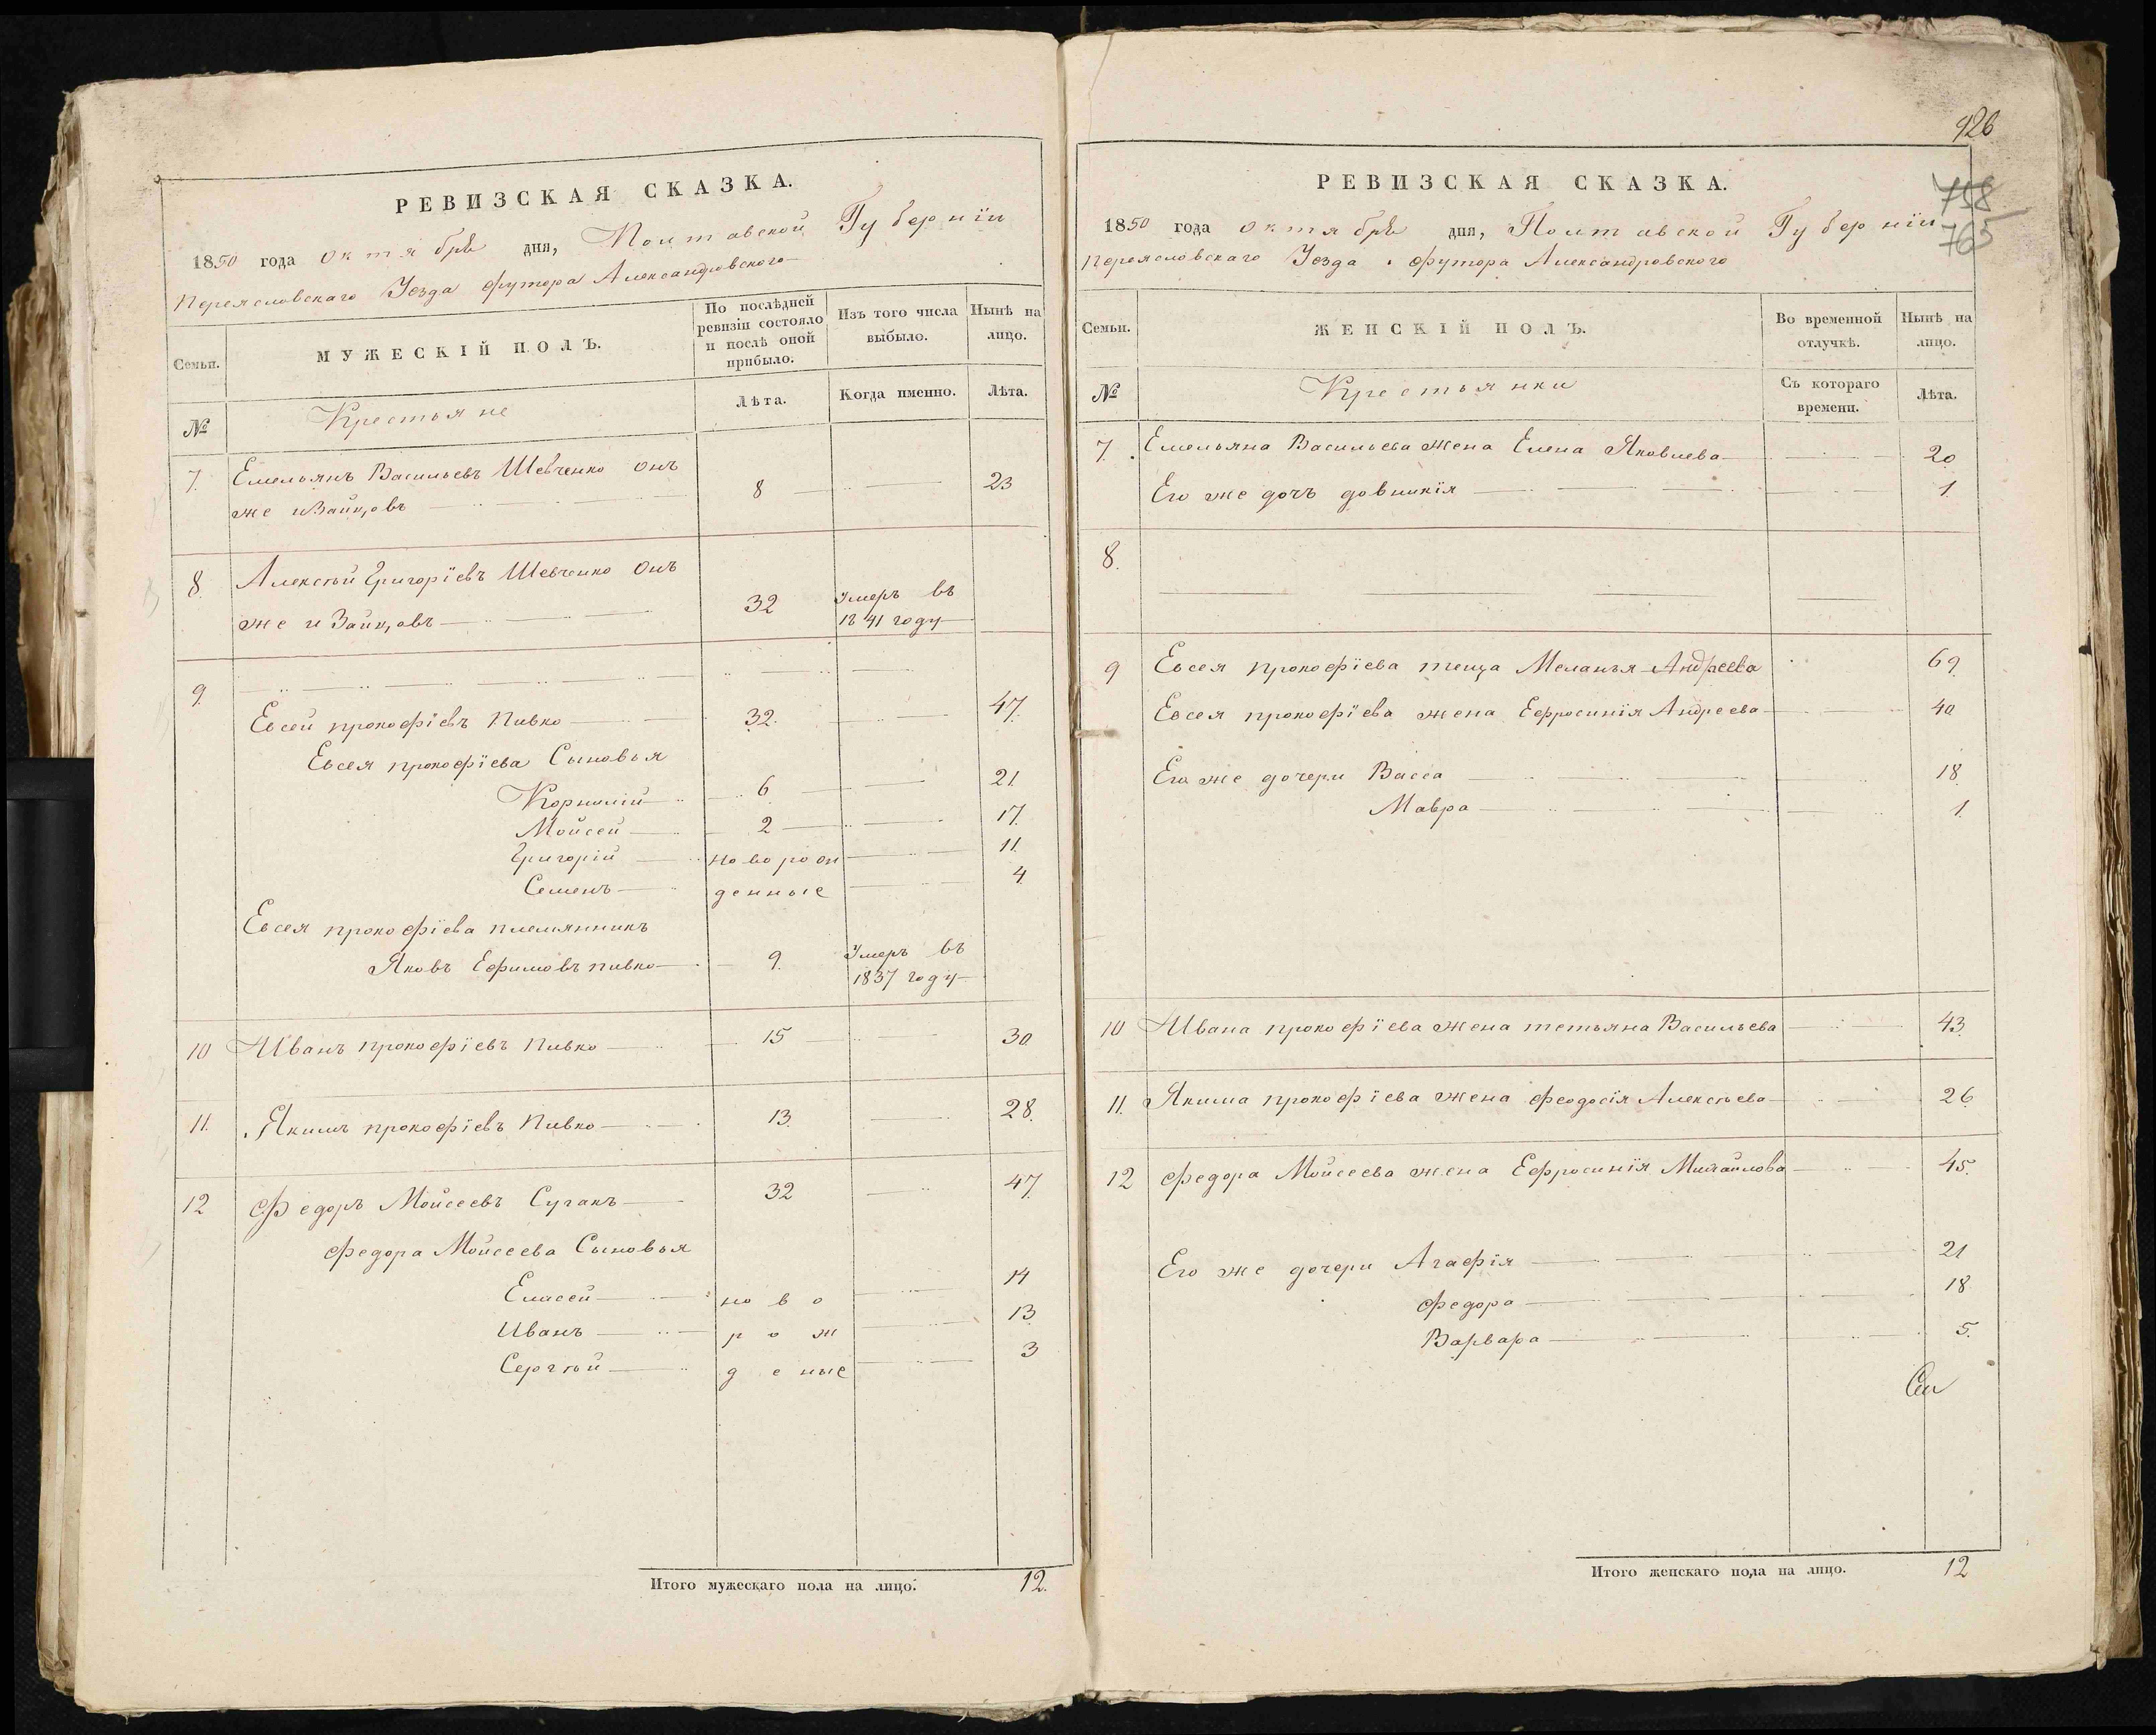 РЕВИЗСКАЯ СКАЗКА.
1850 года октября дня, Полтавской Губернїи
Переясловскаго Уезда футора Александровского
Семьи.
МУЖЕСКІЙ ПОЛЪ.
По послѣдней ревизіи состояло и послѣ оной прибыло.
Изъ того числа выбыло.
Нынѣ на лицо.
№
Крестьяне
Лѣта.
Когда именно.
Лѣта.
7. Емельянъ Васильевъ Шевченко онъ
же и Зайцовъ 8 23
8. Алексѣй Григорїевъ Шевченко онъ
же и Зайцовъ 32 Умеръ въ
1841 году
9.
Евсей прокофїевъ Пивко 32. 47.
Евсея прокофїева Сыновья
Корнилій 6 21.
Мойсей 2 17.
Григорій новорож 11.
Семенъ денные 4.
Евсея прокофїева племянникъ
Яковъ Ефимовъ пивко 9. Умеръ въ
1837 году
10 Иванъ прокофїевъ Пивко 15 30.
11. Якимъ прокофїевъ Пивко 13. 28.
12 Федоръ Мойсеевъ Сугакъ 32 47.
Федора Мойсеева Сыновья
Елисей ново 14
Иванъ рож 13.
Сергѣй деные 3
Итого мужескаго пола на лицо. 12.
926
758
765
РЕВИЗСКАЯ СКАЗКА.
1850 года октября дня, Полтавской Губернїи
Переясловскаго Уезда футора Александровского
Семьи.
ЖЕНСКІЙ ПОЛЪ.
Во временной отлучкѣ.
Нынѣ на лицо.
№
Крестьянки
Съ котораго времени.
Лѣта.
7. Емельяна Васильева жена Елена Яковлева 20.
Его же дочъ довникія 1.
8.
9 Евсея прокофїева теща Меланъя Андреева 69.
Евсея прокофїева жена Ефросинїя Андреева 40
Его же дочери Васса 18.
Мавра 1.
10 Ивана прокофїева жена тетьяна Васильева 43.
11. Якима прокофїева жена феодосїя Алексѣева 26.
12 Федора Мойсеева жена Ефросинїя Михайлова 45.
Его же дочери Агафїя 21
федора 18
Варвара 5.
Итого женскаго пола на лицо. 12